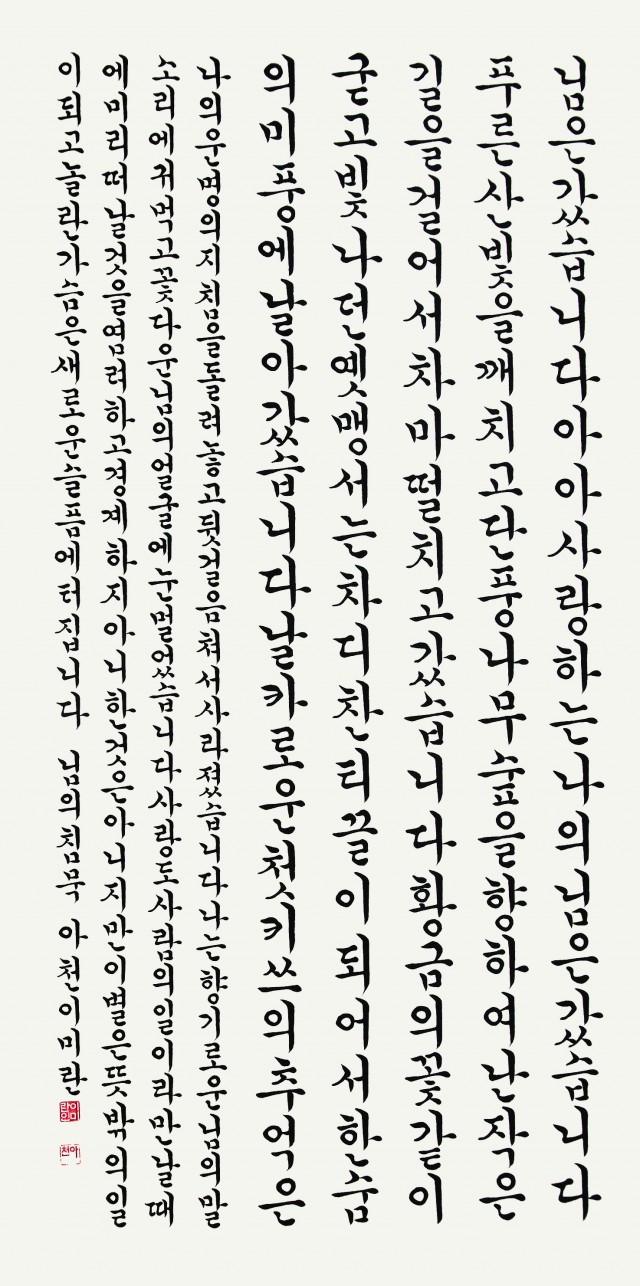 님은갔습니다아아사랑하는나의님은갔습니다
푸른산빛을깨치고단풍나무숲을향하여난작은
길을걸어서차마떨치고갔습니다황금의꽃같이
굳고빛나던옛맹서는차디찬티끌이되어서한숨
의미풍에날아갔습니다날카로운첫키쓰의추억은
나의운명의지침을돌려놓고뒷걸음쳐서사라졌습니다나는향기로운님의말
소리에귀먹고꽃다운님의얼굴에눈멀었습니다사랑도사람의일이라만날때
에미리떠날것을염려하고경계하지아니한것은아니지만이별은뜻밖의일
이되고놀란가슴은새로운슬픔에터집니다 님의침묵 아천이미란
이미란인
아천